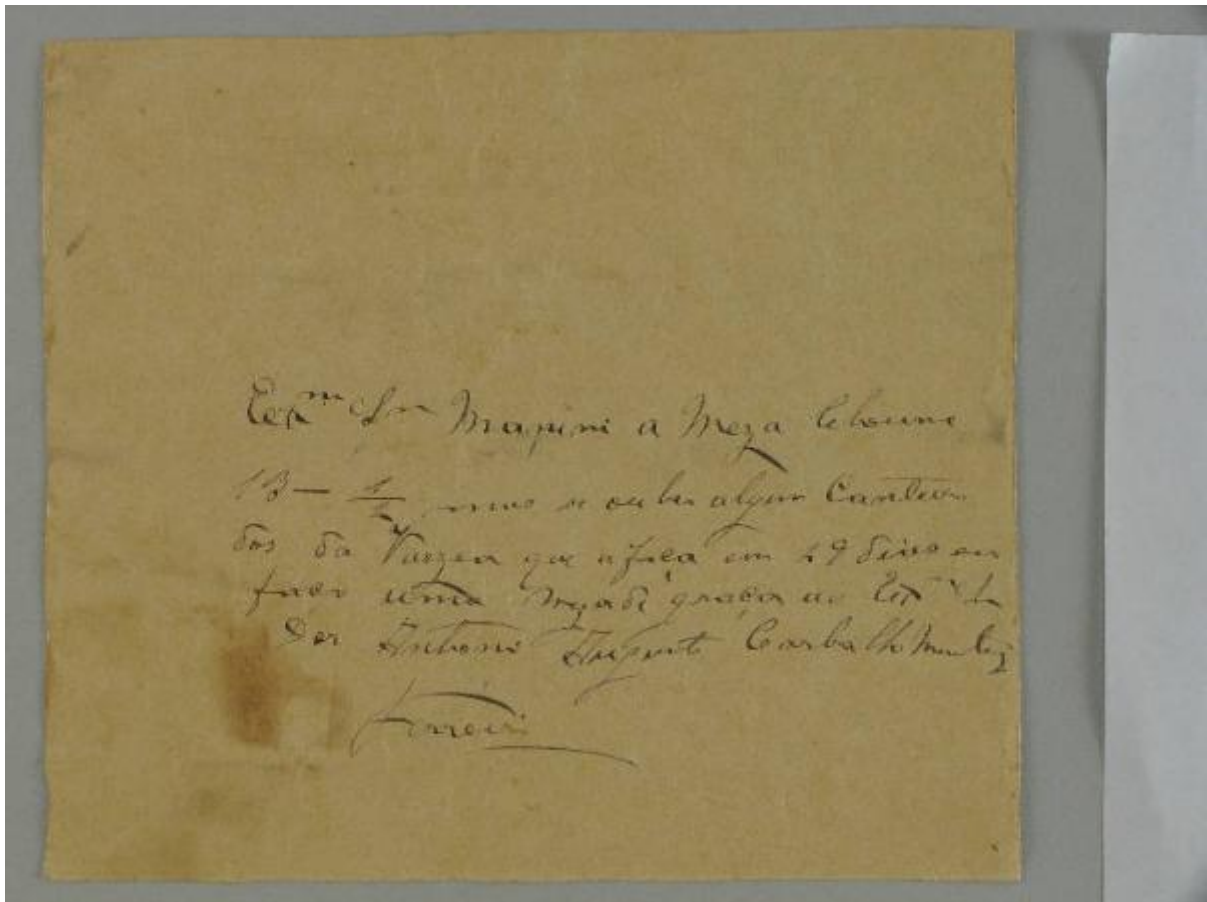 Exmo Snr Manini a Meza levoume
13 — 1/2 mas se ouber algun Canteiro
dos da Varzea que a fica em 29 dias eu
faço uma graça ao Exmo Sr
Dor Antonio Augusto Carbalho Monteiro
Ferreira